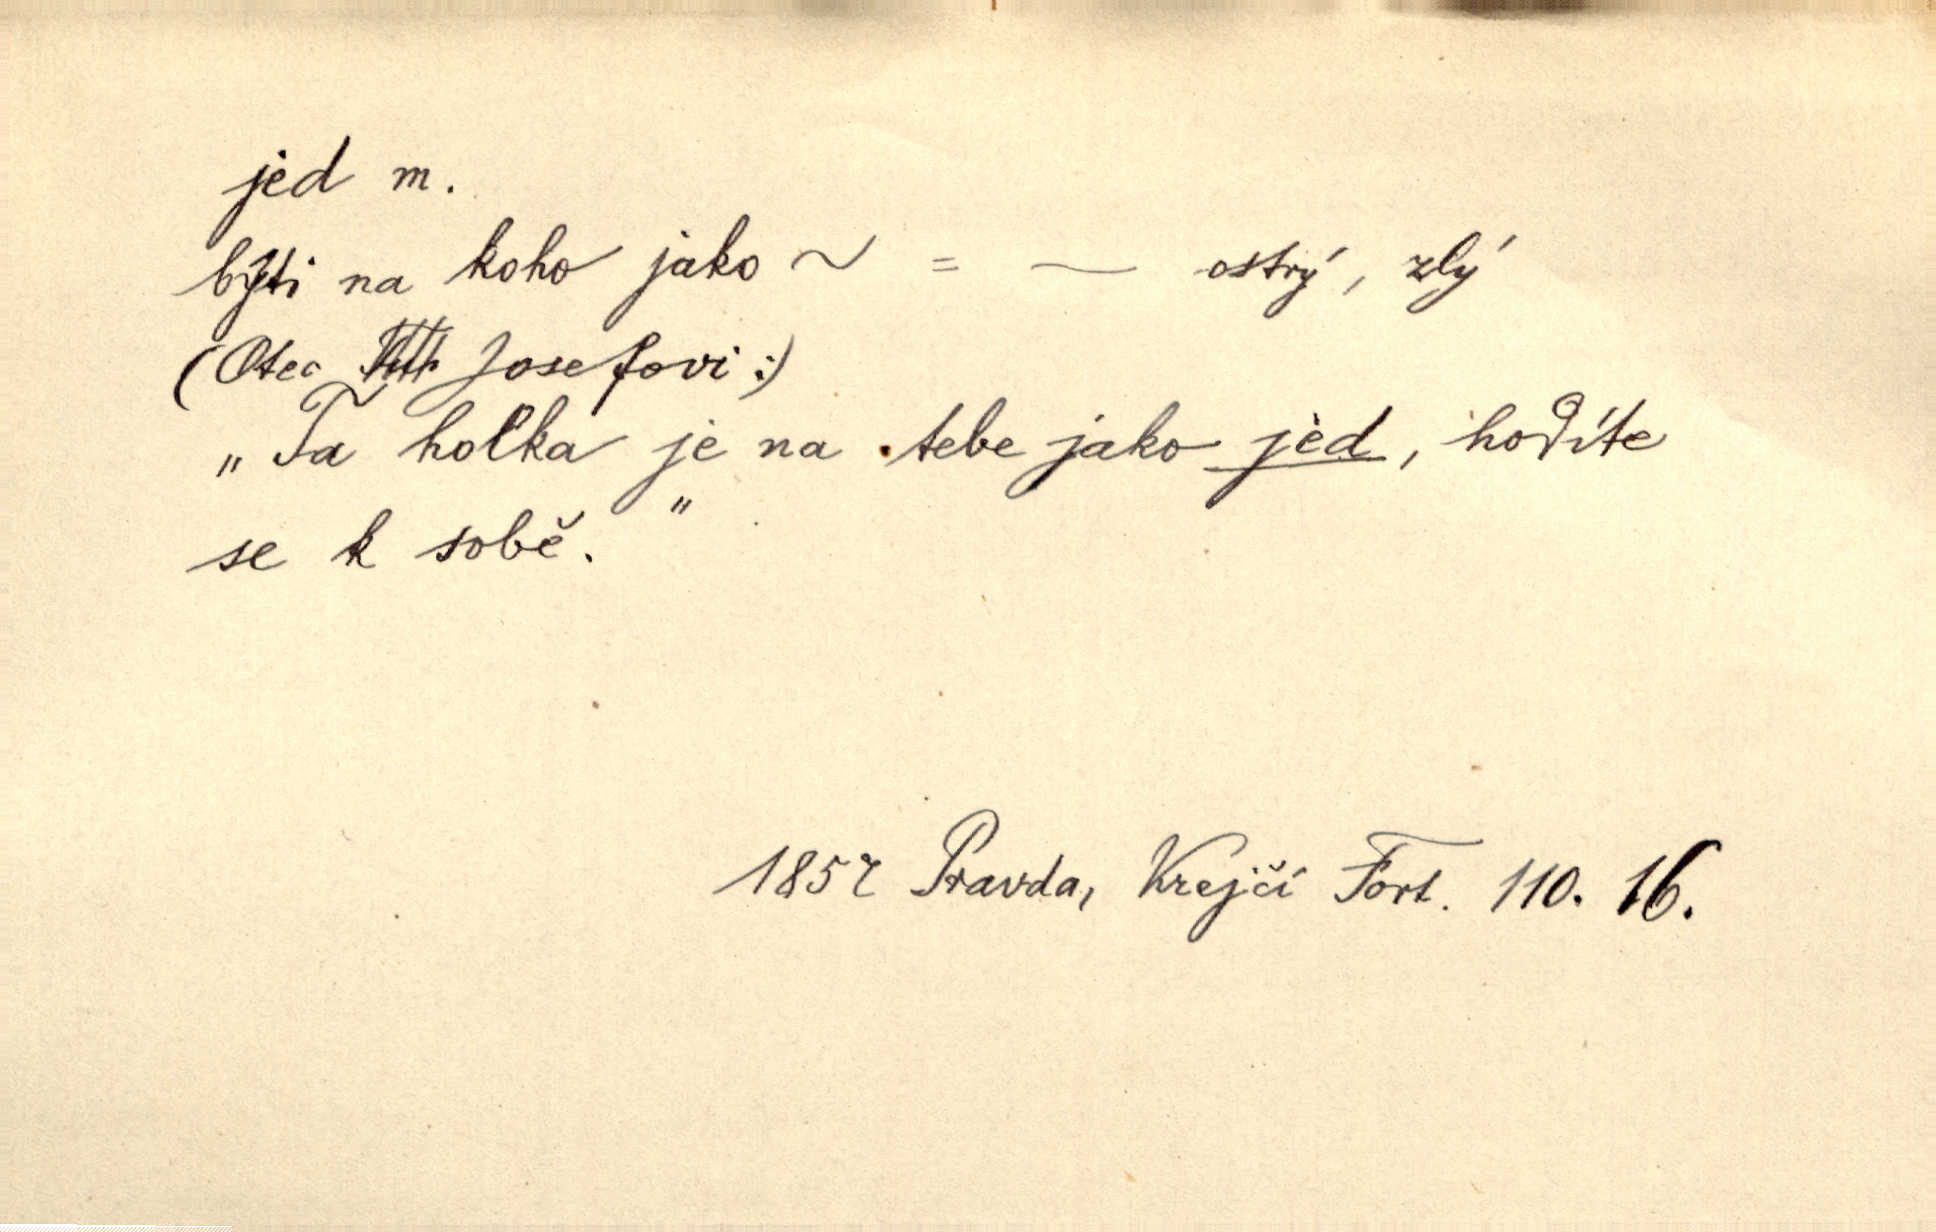 jed m.
býti na koho jako ~ = — ostrý, zlý
(Otec Josefovi:)
„Ta holka je na tebe jako jed, hodíte
se k sobě."
1857 Pravda, Krejčí Fort. 110. 16.